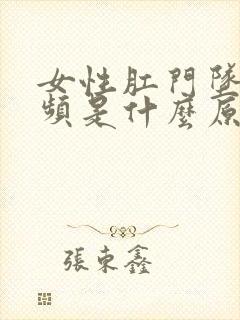 女性肛門墜
頻是什麼原
張東鑫